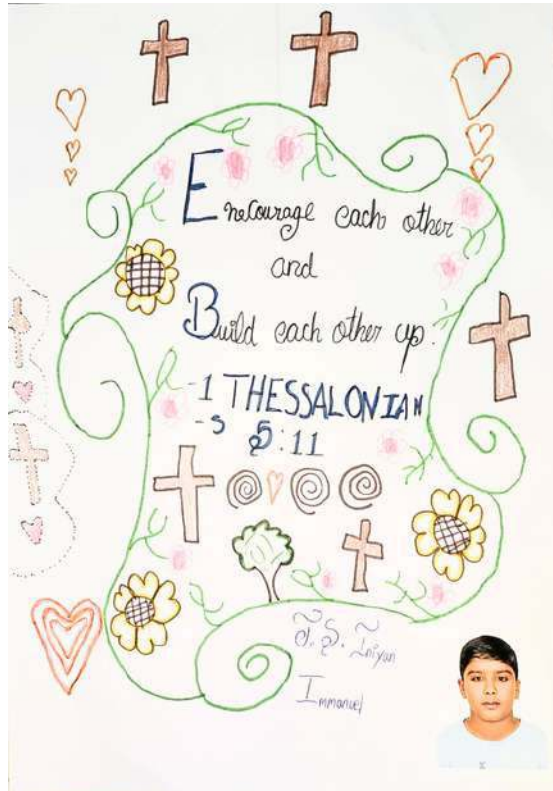 Encourage each other
and
Build each other up.
-1 THESSALONIAN
-S 5:11
Iniyan
Immanuel